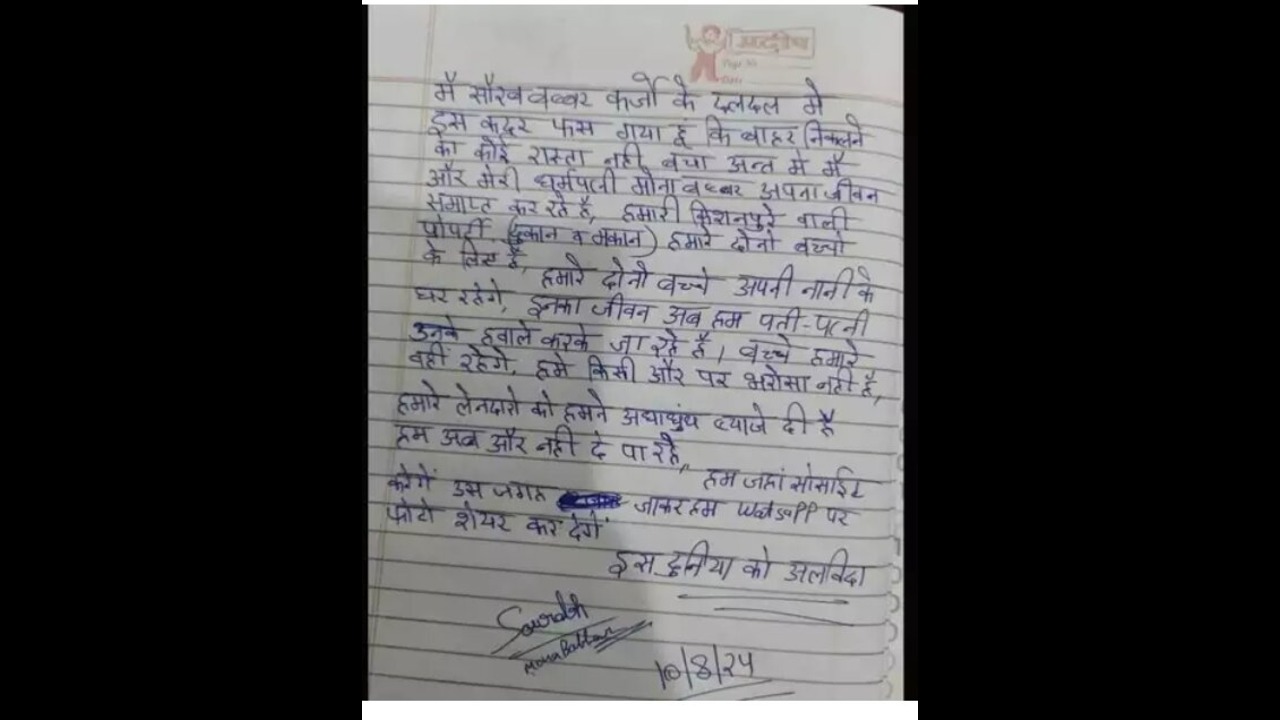 मै सौरव बब्बर कर्जो के दलदल मे
इस कदर फस गया हूं कि बाहर निकलने
का कोई रास्ता नही बचा अन्त मे मै
और मेरी धर्मपत्नी मोना बब्बर अपना जीवन
समाप्ट कर रहे है, हमारी किशनपुरे वाली
प्रोपर्टी (दुकान व मकान) हमारे दोनो बच्चो
के लिए है,
हमारे दोनो बच्चे अपनी नानी के
घर रहेगे, इनका जीवन अब हम पती-पत्नी
उनके हवाले करके जा रहे है। बच्चे हमारे
वहीं रहेगे, हमे किसी और पर भरोसा नही है,
हमारे लेनदारो को हमने अधाधुंध ब्याजे दी है
हम अब और नही दे पा रहे,
हम जहां सोसाईट
करेगें उस जगह जाकर हम Watsapp पर
फोटो शेयर कर देगें
इस दुनिया को अलविदा
Saurabh
Mona Babbar
10/8/24